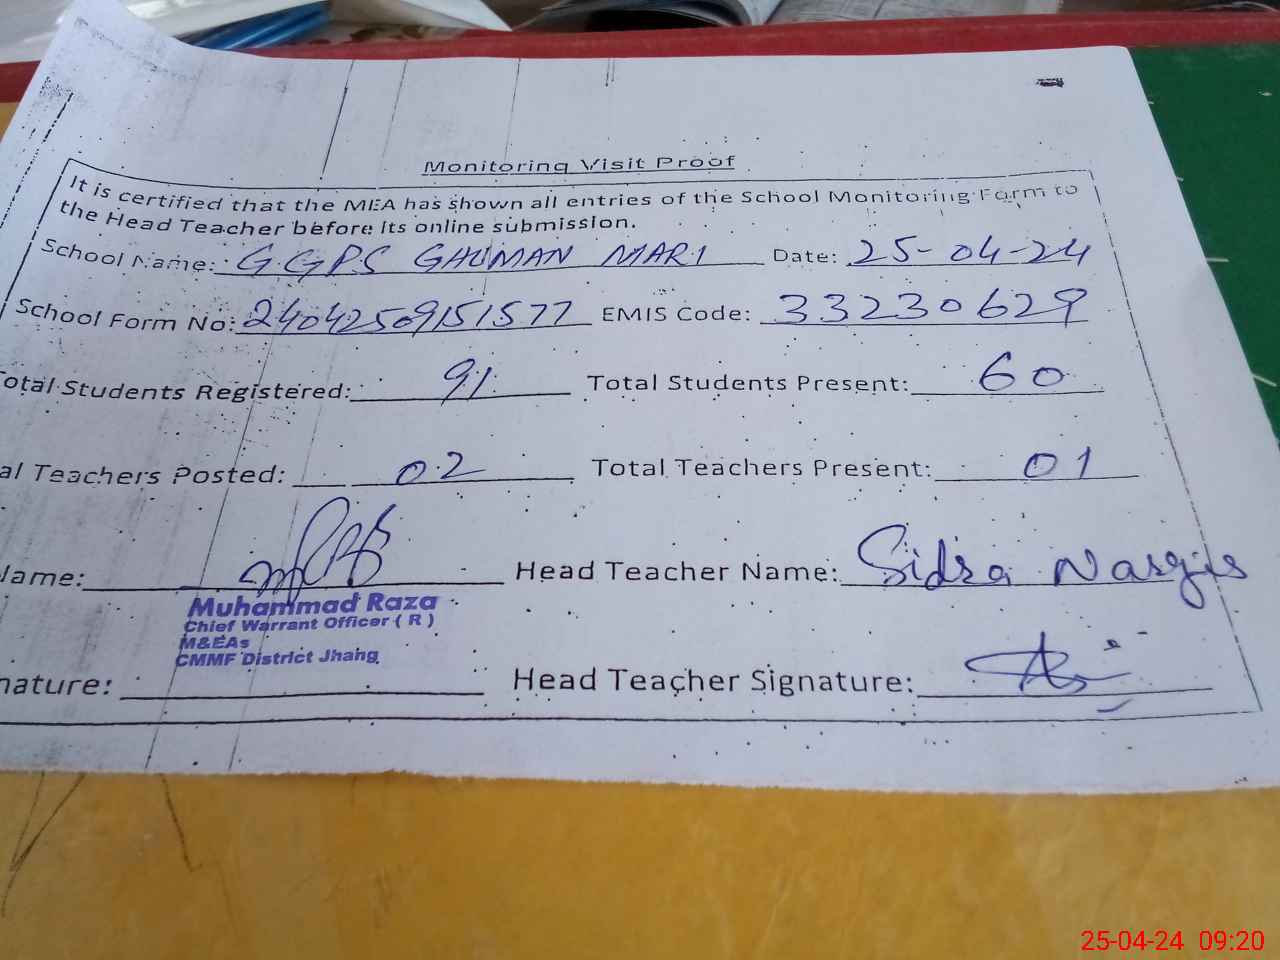 Monitoring Visit Proof
It is certified that the MEA has shown all entries of the School Monitoring Form to
the Head Teacher before its online submission.
School Name: GGPS GHUMAN MARI Date: 25-04-24
School Form No: 24042509151577 EMIS Code: 33230629
otal Students Registered: 91 Total Students Present: 60
al Teachers Posted: 02 Total Teachers Present: 01
Name: Head Teacher Name: Sidra Nargis
Muhammad Raza
Chief Warrant Officer ( R )
M&EAs
CMMF District Jhang
nature: Head Teacher Signature:
25-04-24 09:20